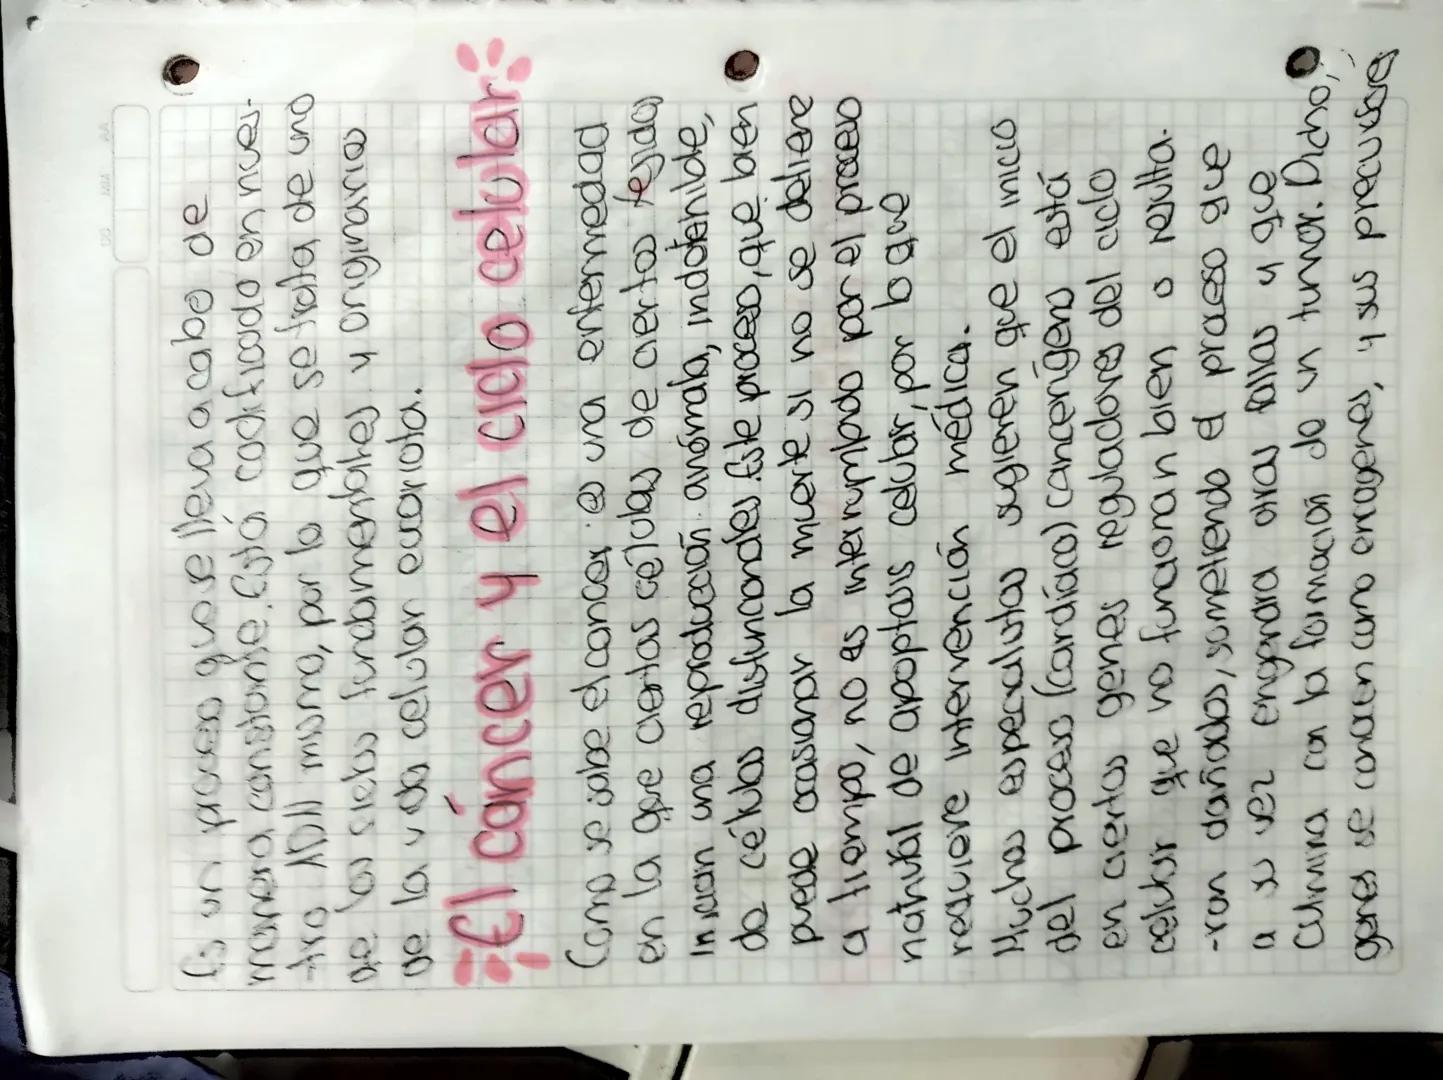 Es un proceso que se lleva a cabo de
manera constante. Está codificado en nues-
tro ADN mismo, por lo que se trata de uno
de los ciclos fundamentales y originarios
de la vida celular eucariota.
El cáncer y el ciclo celular
Como se sabe el cancer es una enfermedad
en la que ciertas células de ciertos tejidos
inician una reproducción anómala, indetenible,
de células disfuncionales. Este proceso, que bien
puede ocasionar la muerte si no se detiene
a tiempo, no es interrumpido por el proceso
natural de apoptosis celular, por lo que
requiere intervención médica.
Muchos especialistas sugieren que el inicio
del proceso (cardíaco) cancerígeno está
en ciertos genes reguladores del ciclo
celular que no funcionan bien o resulta-
-ron dañados, sometiendo el proceso que
a su vez engendra otras fallas y que
culmina con la formación de un tumor. Dicho,
genes se conocen como oncogenes, y sus precursores,